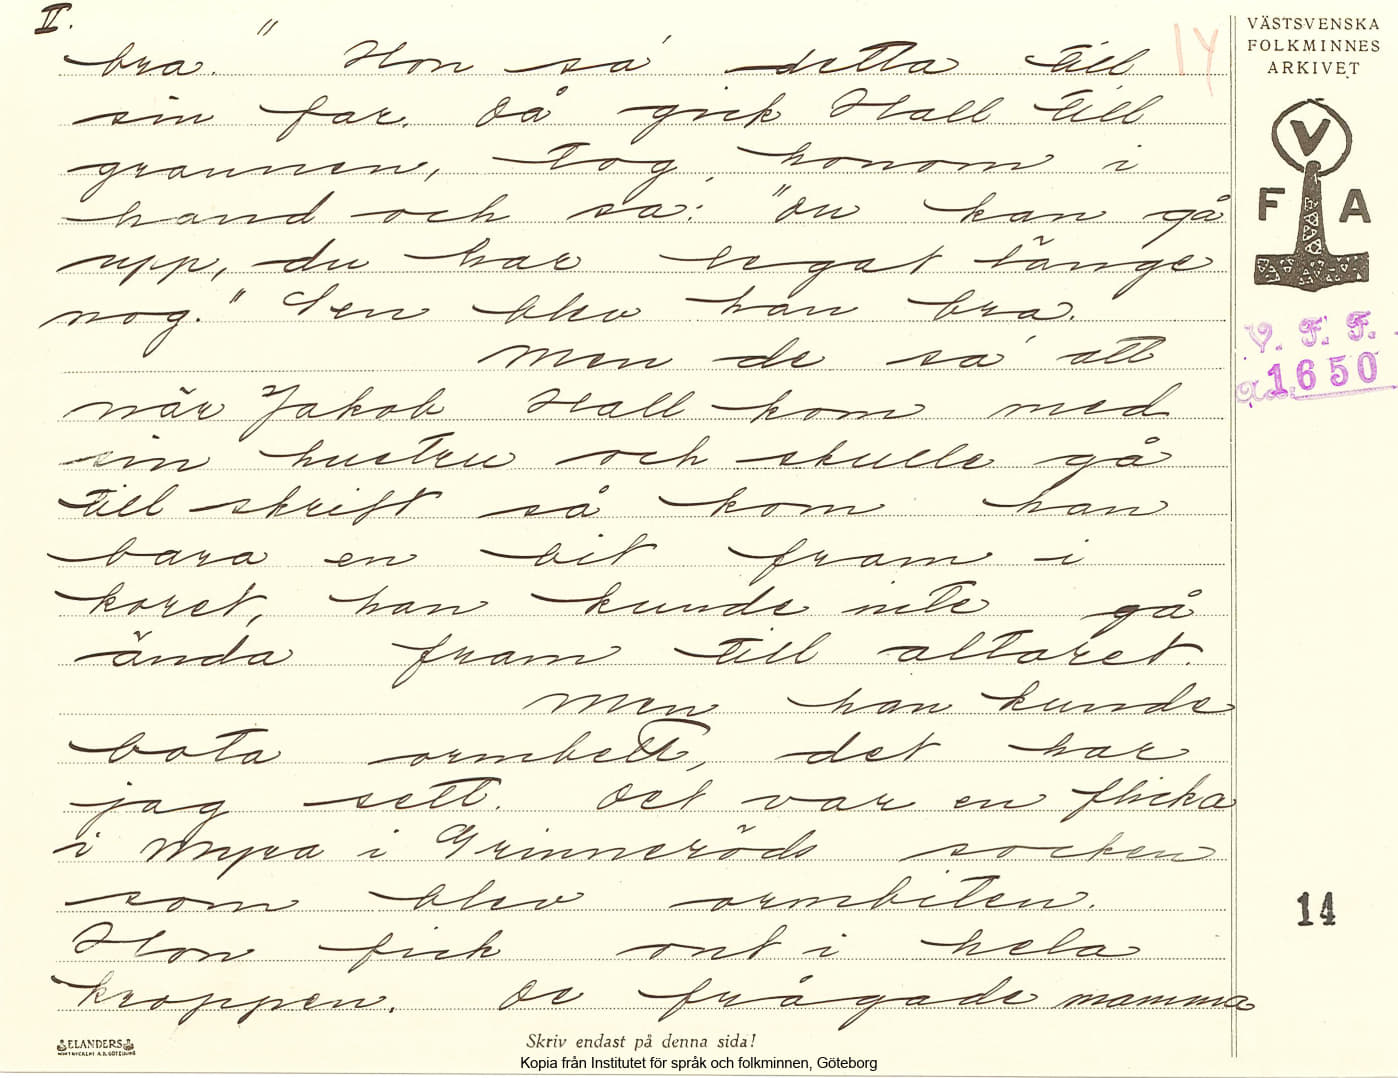 II.
bra." Hon sa' detta till
sin far. Då gick Hall till
grannen, tog honom i
hand och sa: "Du kan gå
upp, du har legat länge
nog." Sen blev han bra.
Men de sa' att
när Jakob Hall kom med
sin hustru och skulle gå
till skrift så kom han
bara en bit fram i
koret, han kunde inte gå
ända fram till altaret.
Men han kunde
bota ormbett, det har
jag sett. Det var en flicka
i Myra i Grinneröds socken
som blev ormbiten.
Hon fick ont i hela
kroppen. De frågade mamma
14
VÄSTSVENSKA
FOLKMINNES
ARKIVET
V
F A
V. F. F.
1650
14
ELANDERS
Skriv endast på denna sida!
Kopia från Institutet för språk och folkminnen, Göteborg